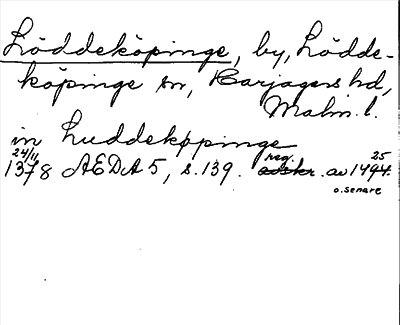 Löddeköpinge, by, Lödde-
köpinge sn, Harjagers hd,
Malm. l.
in Luddeköpinge
24/11
1378 AEDA 5, s. 139. reg. avskr. av 1494. 25
o. senare